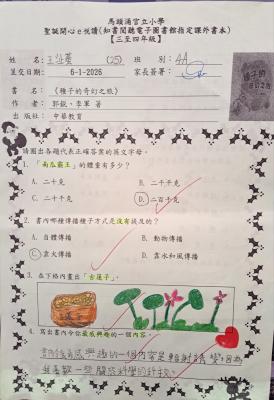 馬頭涌官立小學
聖誕開心e悅讀(知書閱聽電子圖書館指定課外書本)
【三至四年級】
姓名: (25) 班別: 4A
呈交日期: 6-1-2026 家長簽署:
書名: 《種子的奇幻之旅》
作者: 郭銳、李軍 著
出版社: 中華教育
請圈出各題代表正確答案的英文字母。
1. 「南瓜霸王」的體重有多少?
A. 二十克 B. 二千千克
C. 二十千克 D. 二百千克
2. 書內哪種傳播種子方式是沒有提及的?
A. 自體傳播 B. 動物傳播
C. 靠火傳播 D. 靠水和風傳播
3. 在下格內畫出「古蓮子」。
4. 寫出書內令你最感興趣的一個內容。
我最感興趣的一個內容是輻射誘變,因為
我喜歡一些關於科學的科技。